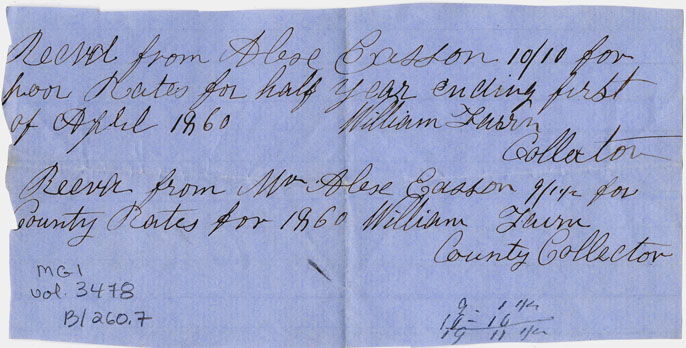 Recevd from Alexe Easson 10/10 for
poor Rates for half year ending first
of April 1860 William Fairn
Collector
Recevd from Mr Alexe Easson 9/1½ for
County Rates for 1860 William Fairn
County Collector
MG1
vol. 3478
B/260.7
9 - 1 ½
10 - 10
19 11 ½